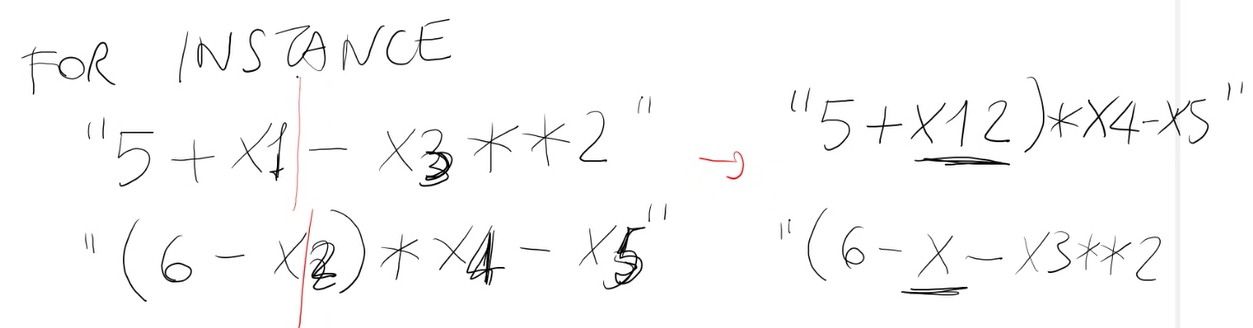 FOR INSTANCE
"5 + X1 - X3 * * 2"
"(6 - X2) * X4 - X5"
"5 + X12) * X4 - X5"
"(6 - X - X3 * * 2